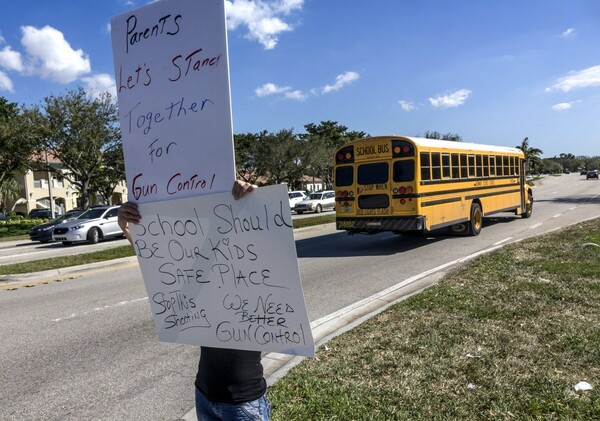 Parents
Let's Stand
Together
For
Gun Control
School Should
Be Our Kids
Safe Place
Stop This
Shooting
We Need
Better
Gun Control
SCHOOL BUS